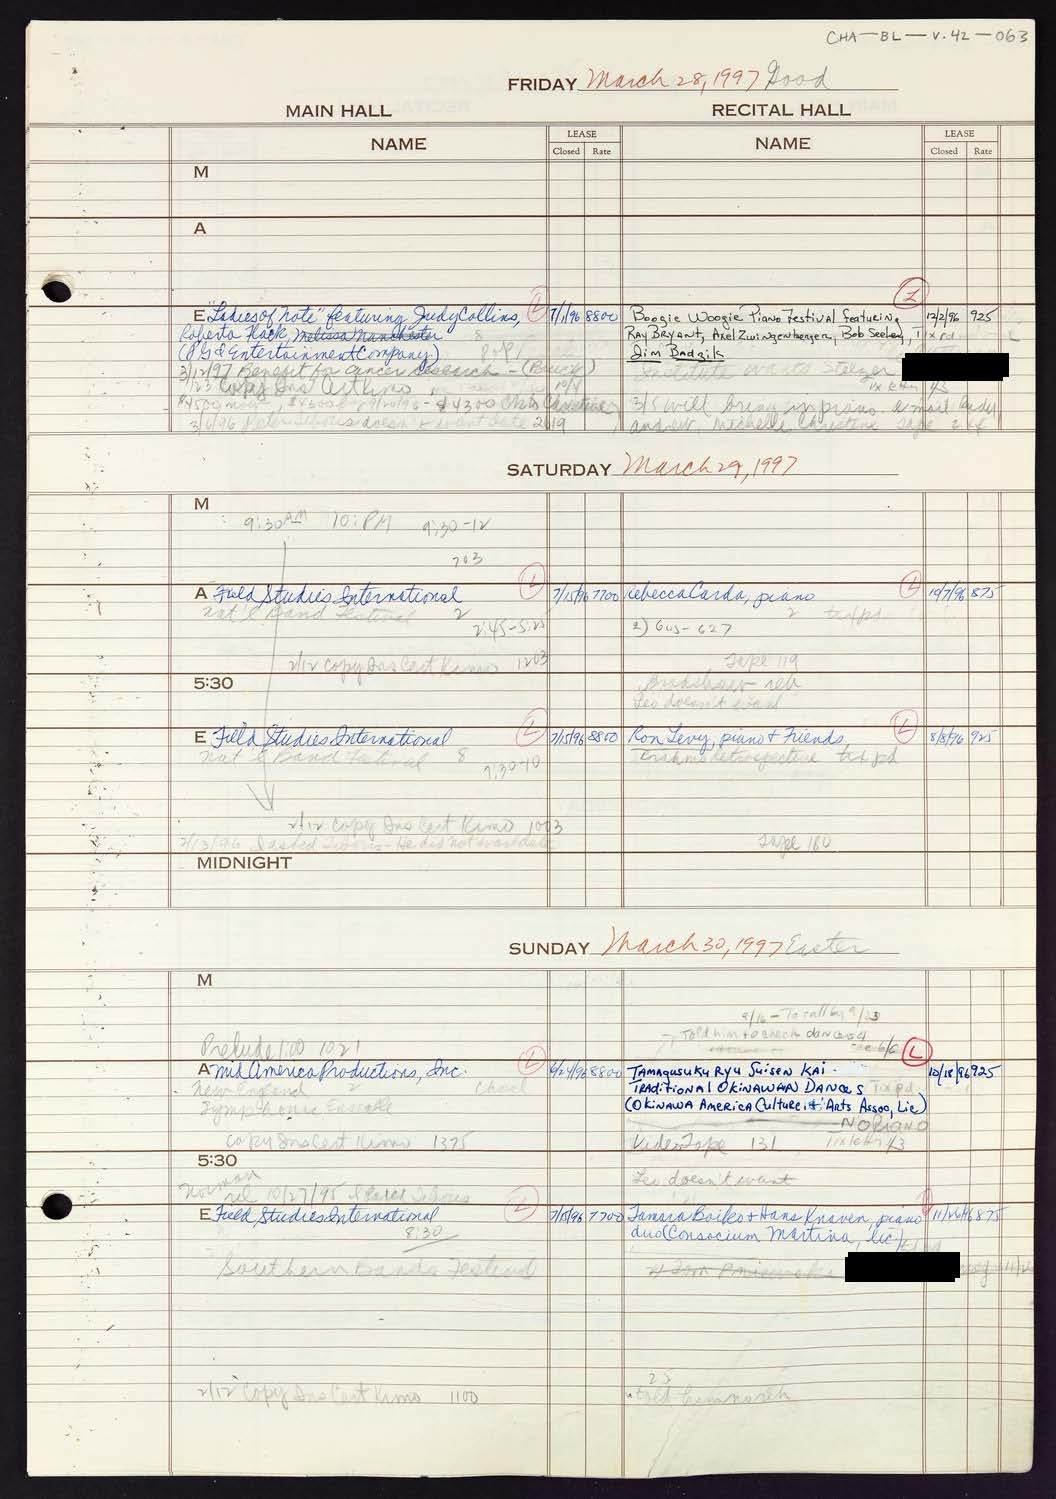 CHA-BL-V.42-063
FRIDAY March 28, 1997 Good
MAIN HALL
RECITAL HALL
NAME LEASE Closed Rate NAME LEASE Closed Rate
M
A
E "Ladies of Note" featuring Judy Collins, L 7/1/96 8800
Roberta Flack, Melissa Manchester 8
(JG Entertainment Company)
3/12/97 Benefit for Cancer Research
1/23 Copy Ins Cert Kimo 10/4
3/6/96 doesn't want date 2119
L
Boogie Woogie Piano Festival featuring 12/2/96 925
Ray Bryant, Axel Zwingenberger, Bob Seeley, Tix pd
Jim Badzik
Institute wants Steizer
3/5 will bring in piano. email
andrew, Michelle Christine
SATURDAY March 29, 1997
M
9:30 AM 10:PM 9:30-12
703
A Field Studies International L 7/15/96 7700
Nat'l Band Festival 2
2:45-5:25
2/12 Copy Ins Cert Kimo 1203
Rebecca Carda, piano L 10/7/96 875
2 tix/pd
2) 605-627
Tape 119
5:30
reh
Leo doesn't want
E Field Studies International L 7/15/96 8800
Nat'l Band Festival 8
7:30-10
2/12 Copy Ins Cert Kimo 1003
2/13/96 I asked - He did not want date
Ron Levy, piano & Friends, L 8/8/96 925
Brahms retrospective tix pd
Tape 180
MIDNIGHT
SUNDAY March 30, 1997 Easter
M
9/16 - To call by 9/23
Told him to check dances
Prelude 1:00 1021
A Mid America Productions, Inc. L 6/24/96 8800
New England 2 Choral
Symphonic Ensemble
Copy Ins Cert Kimo 1375
L
Tamagusuku Ryu Suisen Kai - 10/18/96 925
Traditional Okinawan Dances Tix pd
(Okinawa America Culture & Arts Assoc, Lic)
NO PIANO
Video Tape 131
5:30
Leo doesn't want
Norman
rel 10/27/95
E Field Studies International L 7/15/96 7700
8:30
Southern Bands Festival
2/12 Copy Ins Cert Kimo 1100
Tamara Boiko & Hans Knaven, piano 11/26/96 875
duo (Consocium Martina, lic)
25
told